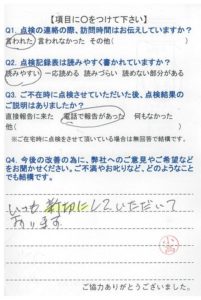 【項目に〇をつけて下さい】
Q1. 点検の連絡の際、訪問時間はお伝えしていますか?
言われた 言われなかった その他( )
Q2. 点検記録表は読みやすく書かれていますか?
読みやすい 一応読める 読みづらい 読めない部分がある
Q3. ご不在時に点検させていただいた後、点検結果の
ご説明はありましたか?
直接報告に来た 電話で報告があった 何もなかった
他( )
※ご在宅時に点検をさせて頂いている場合は無回答で結構です。
Q4. 今後の改善の為に、弊社へのご意見やご希望など
をお聞かせください。ご不満やお叱りなど、どのようなこと
でも結構です。
いつも親切にしていただいて
おります。
ご協力ありがとうございました。